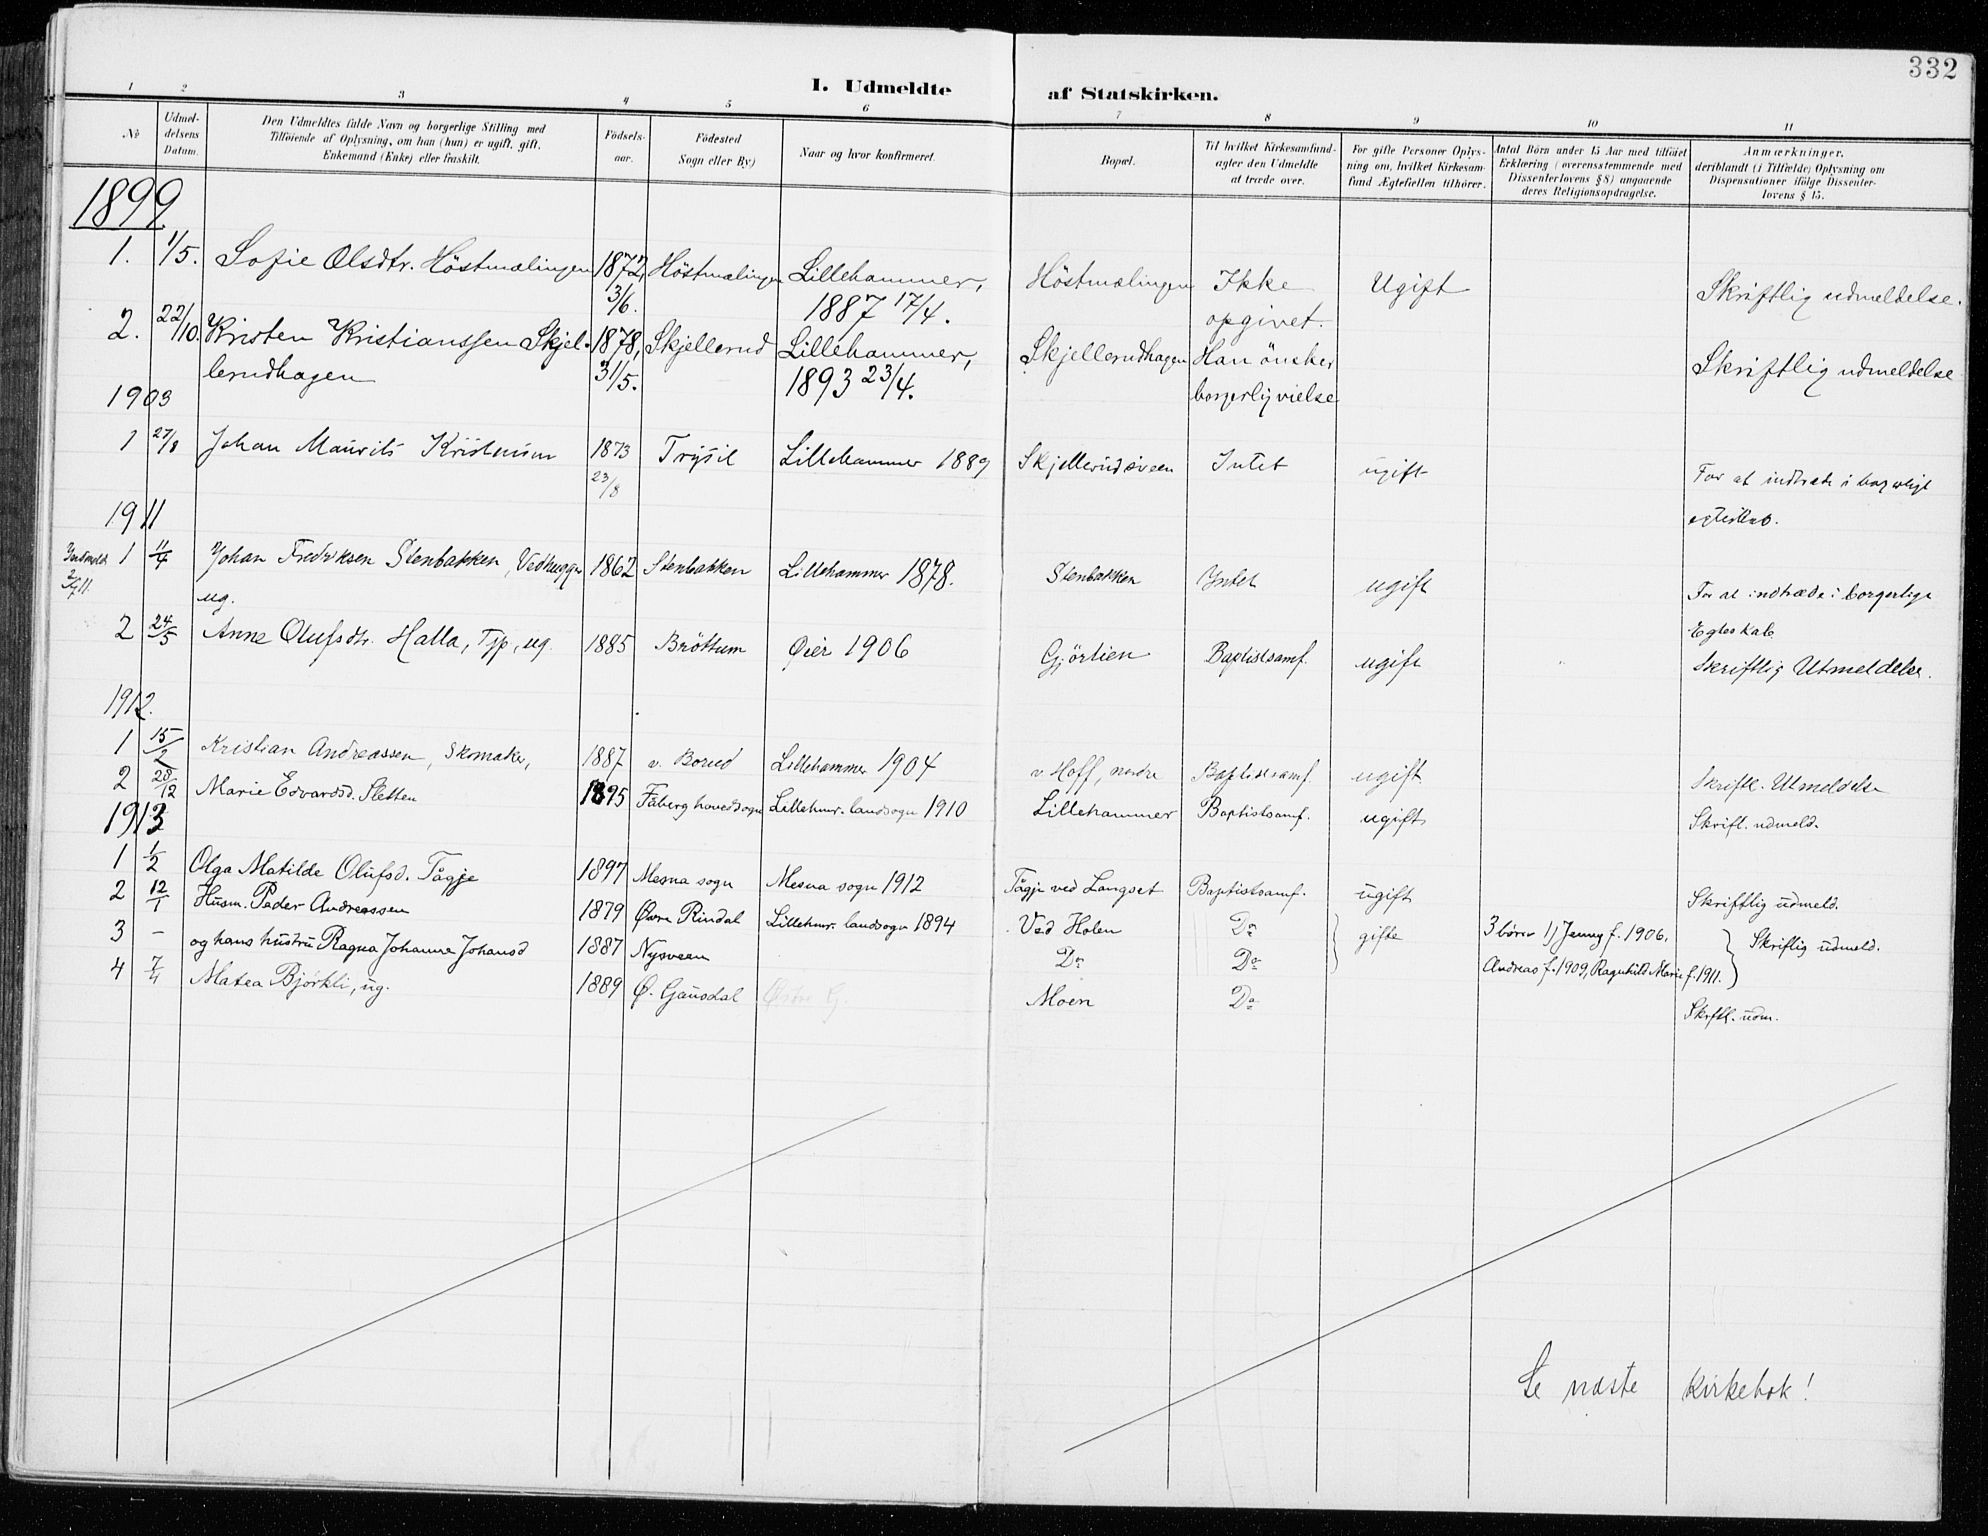 332
I. Udmeldte af Statskirken.
1 2 3 4 5 6 7 8 9 10 11
No
Udmel-
delsens
Datum.
Den Udmeldtes fulde Navn og borgerlige Stilling med
Tilföiende af Oplysning, om han (hun) er ugift, gift,
Enkemand (Enke) eller fraskilt.
Födsels-
aar.
Födested
Sogn eller By)
Naar og hvor konfirmeret.
Bopæl.
Til hvilket Kirkesamfund
agter den Udmeldte
at træde over.
For gifte Personer Oplys-
ning om, hvilket Kirkesam-
fund Ægtefællen tilhörer.
Antal Börn under 15 Aar med tilföiet
Erklæring (overensstemmende med
Dissenterlovens § 8) angaaende
deres Religionsopdragelse.
Anmærkninger,
deriblandt (i Tilfælde) Oplysning om
Dispensationer ifölge Dissenter-
lovens § 15.
1899
1. 1/5. Sofie Olsdtr. Höstmælingen 1872, Höstmælingen Lillehammer, Höstmælingen Ikke Ugift Skriftlig udmeldelse.
3/6. 1887 17/4. opgivet.
2. 22/10. Kristen Kristianssen Skjel- 1878, Skjellerud Lillehammer, Skjellerudhagen Han önsker Skriftlig udmeldelse
lerudhagen 31/5. 1893 23/4. borgerlig vielse
1903
1 27/8 Johan Maurits Kristensen 1873 Trysil Lillehammer 1889 Skjellerudsveen Intet ugift For at indtræde i borgerligt
23/8 egteskab.
1911
Indmeldt 1 11/4 Johan Fredriksen Stenbakken, Vedhugger 1862 Stenbakken Lillehammer 1878. Stenbakken Intet ugift For at indtræde i borgerlige
ug. Egteskab
2 24/5 Anne Olufsdtr. Halla, Tjp, ug. 1885 Bröttum Öier 1906 Gjörlien Baptistsamf. ugift Skriftlig Utmeldelse.
1912.
1 15/2 Kristian Andreassen, Skomaker, 1887 v. Borud Lillehammer 1904 v. Hoff, nordre Baptistsamf. ugift Skriftl. Utmeldelse
2 28/12 Marie Edvardsd. Sletten 1895 Fåberg hovedsogn Lillehmr. landsogn 1910 Lillehammer Baptistsamf. ugift Skriftl. udmeld.
1913
1 1/2 Olga Matilde Olufsd. Tågje 1897 Mesna sogn Mesna sogn 1912 Tågje ved Langset Baptistsamf. ugift Skriftlig udmeld.
2 12/1 Husm. Peder Andreassen 1879 Øvre Rindal Lillehmr. landsogn 1894 Ved Holen Do gifte 3 børn 1) Jenny f. 1906, Skriftlig udmeld.
3 - og hans hustru Ragna Johanne Johansd 1887 Nysveen Do Do Andreas f. 1909, Ragnhild Marie f. 1911.
4 7/4 Matea Bjørkli, ug. 1889 Ø. Gausdal Østre G. Moen Do Skriftl. udm.
Se næste kirkebok!